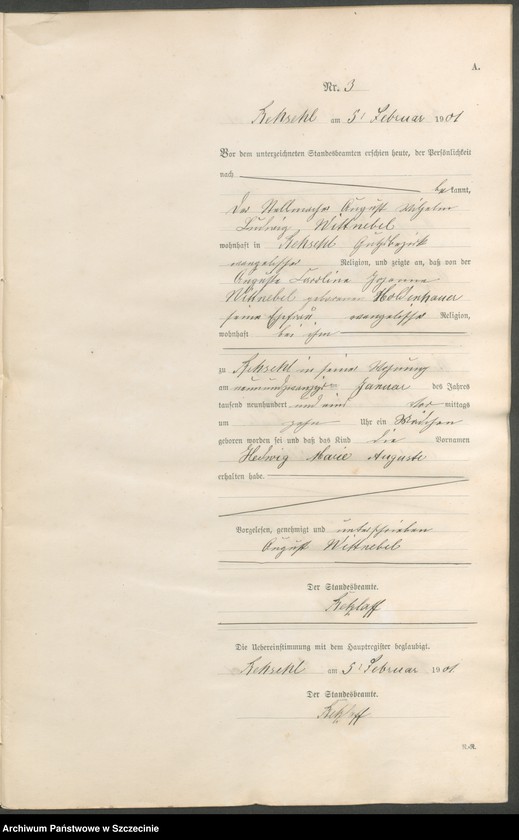 A.
Nr. 3
am 5t Februar 1901
Vor dem unterzeichneten Standesbeamten erschien heute, der Persönlichkeit
nach
bekannt,
der Stellmacher August Wilhelm
Ludwig Wittnebel
wohnhaft in Gutsbezirk
evangelischer Religion, und zeigte an, daß von der
Auguste Caroline Johanne
Wittnebel geborenen Moldenhauer
seine Ehefrau evangelischer Religion,
wohnhaft bei ihm
zu in seine Wohnung
am neunundzwanzigsten Januar des Jahres
tausend neunhundert und eins Vor mittags
um zehn Uhr ein Mädchen
geboren worden sei und daß das Kind die Vornamen
Hedwig Marie Auguste
erhalten habe.
Vorgelesen, genehmigt und unterschrieben
August Wittnebel
Der Standesbeamte.
Retzlaff
Die Uebereinstimmung mit dem Hauptregister beglaubigt.
am 5t Februar 1901
Der Standesbeamte.
Retzlaff
N.-R.
Archiwum Państwowe w Szczecinie